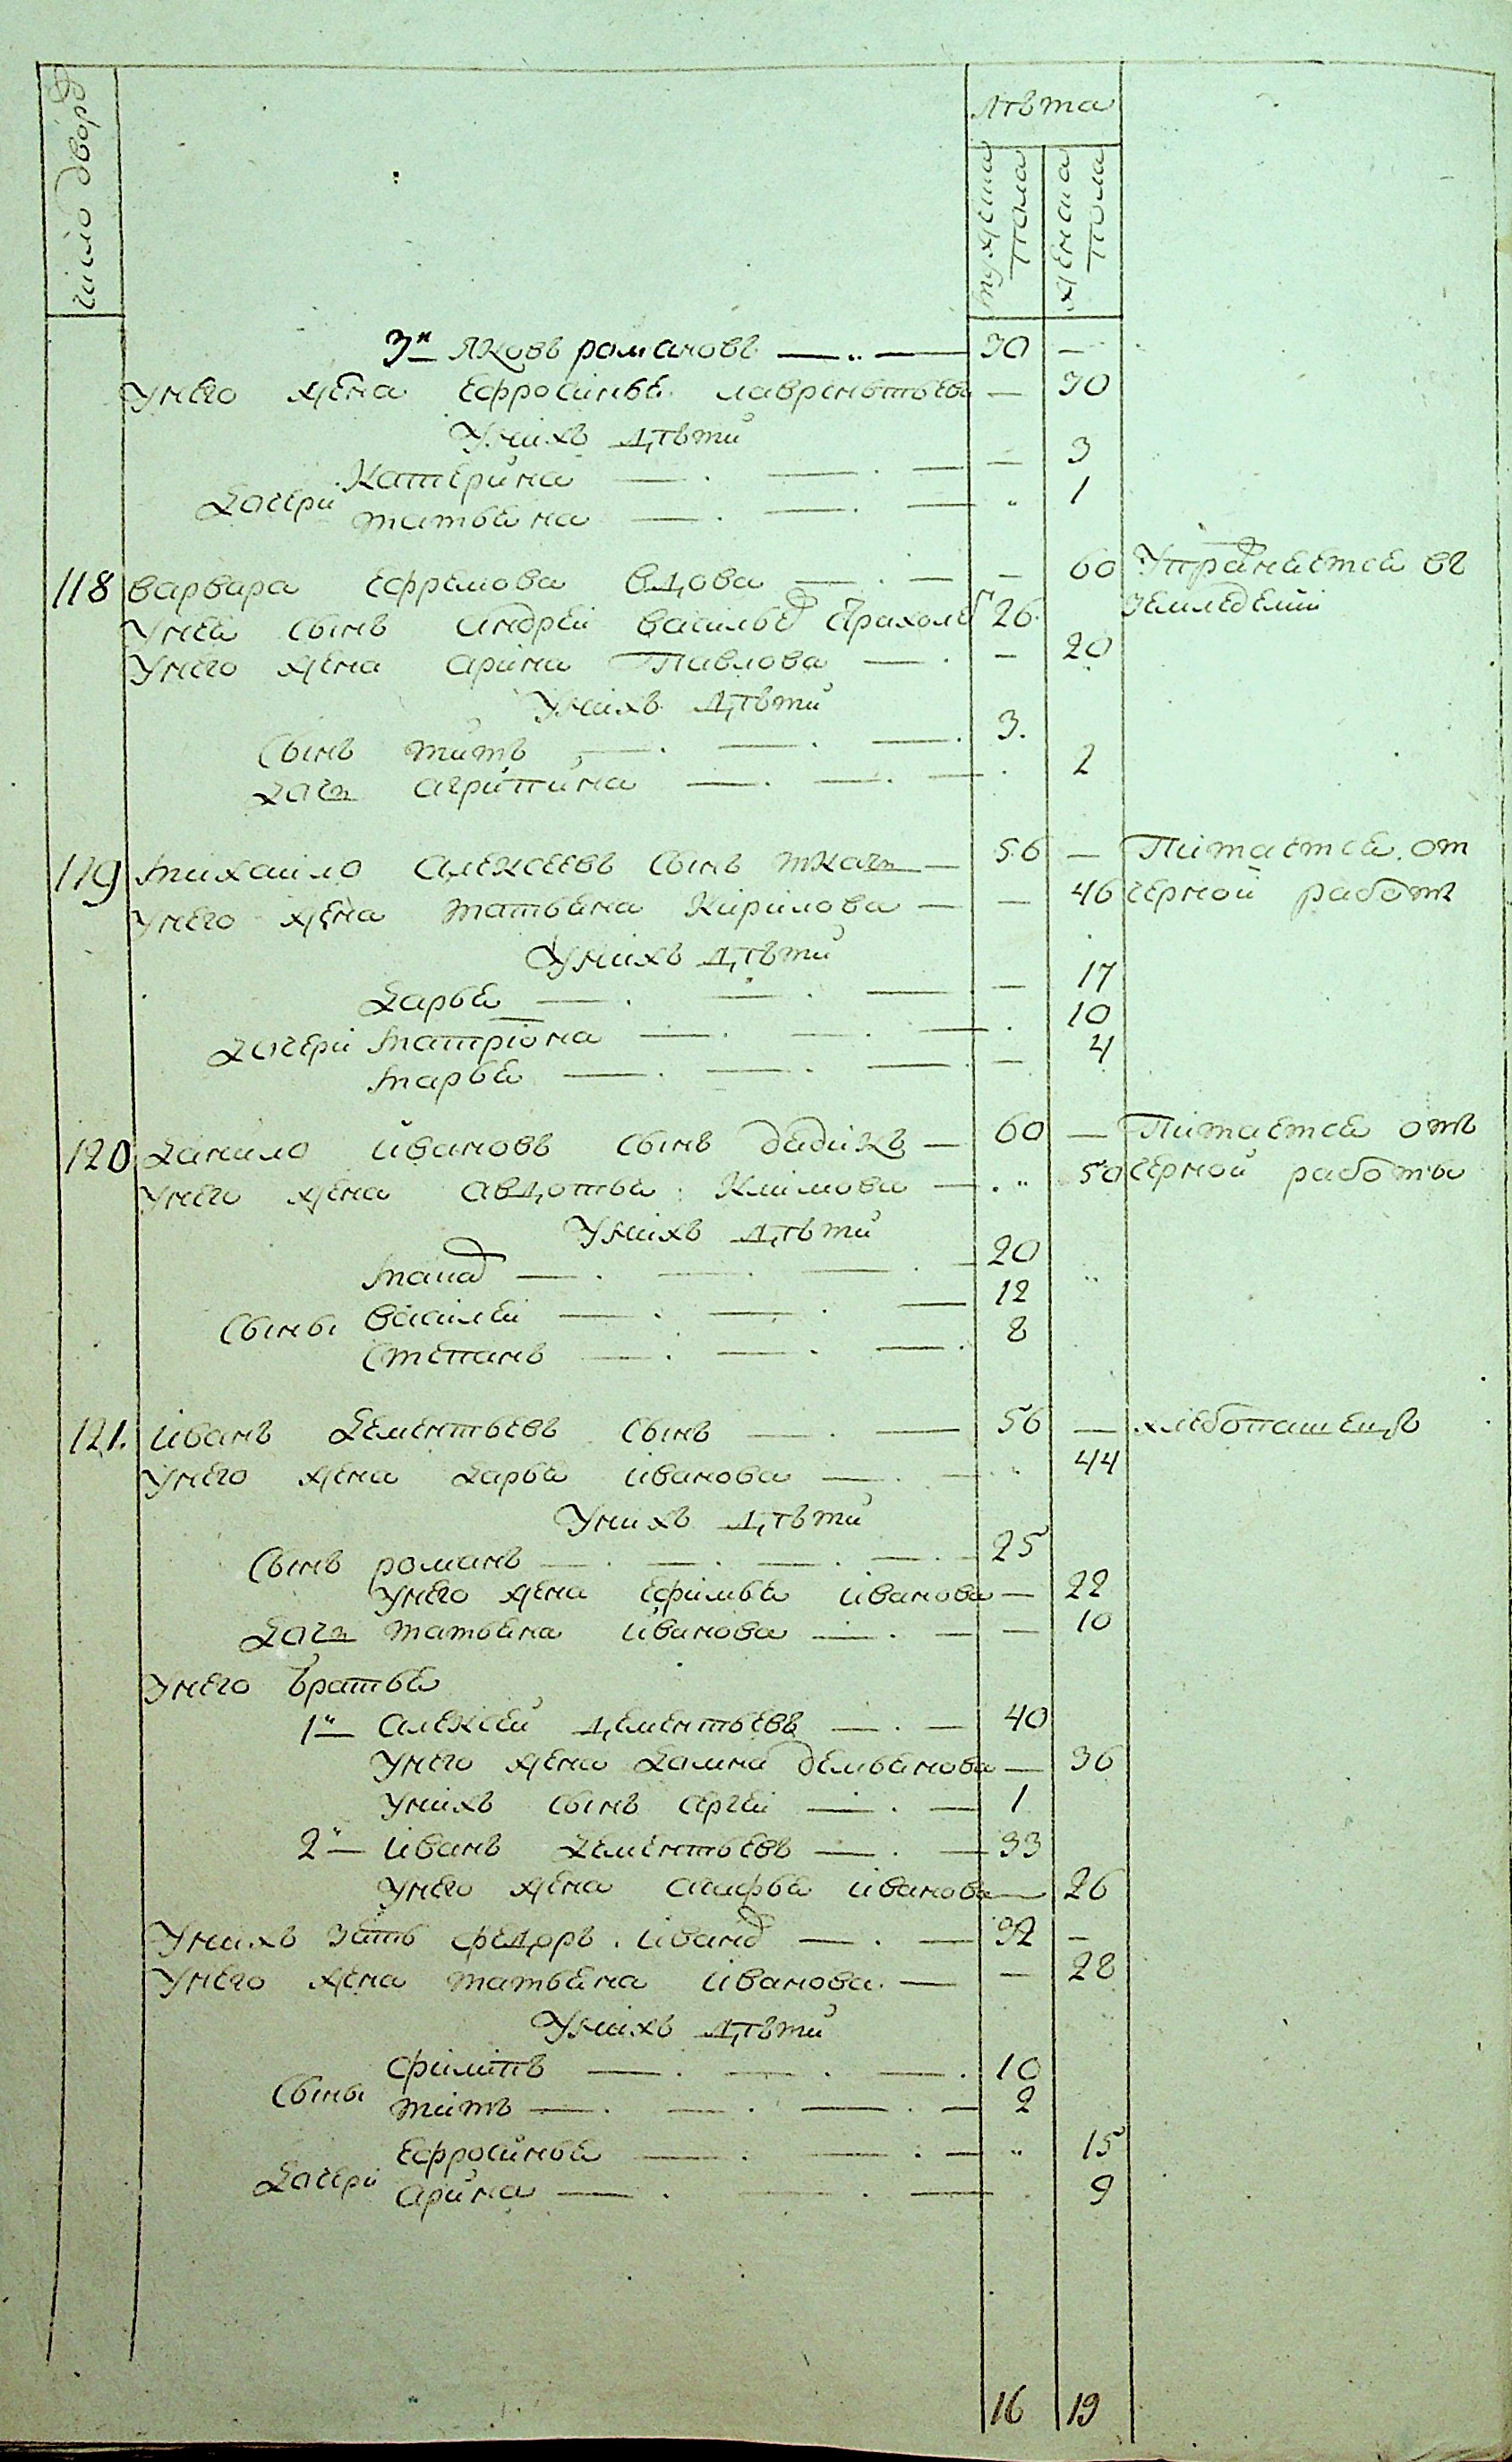 число дворов
лѣта
мужеска пола
женска пола
3й Яковъ романовъ — 30 —
Унего жена Ефросинья лаврентьева — 30
Унихъ дѣти
Катерина — — 3
Дочери
татьяна — 1
118 варвара Ефремова вдова — — 60 Упражняется въ
земледелии
Унея сынъ андрей васильев 26
Унего жена арина Павлова — — 20
Унихъ дѣти
Сынъ титъ — 3
дочь агрипина — 2
119 михаило алексеевъ сынъ ткачь — 56 — Питается от
Унего жена татьяна Кирилова — — 46 черной работы
Унихъ дѣти
дарья — — 17
дочери матриона — 10
марья — — 4
120 данило ивановъ сынъ дядикъ — 60 — Питается отъ
Унего жена авдотья Климова — 50 черной работы
Унихъ дѣти
— 20
Сыны василей — 12
Степанъ — 8
121. иванъ дементьевъ сынъ — 56 — хлебопашецъ
Унего жена дарья иванова — 44
Унихъ дѣти
Сынъ романъ — 25
Унего жена Ефимья иванова — 22
дочь татьяна иванова — — 10
Унего братья
1й алексей дементьевъ — 40
Унего жена домна демьянова — 36
Унихъ сынъ сергей — 1
2й иванъ дементьевъ — 33
Унего жена иванова — 26
Унихъ зять федоръ иванов — 32 —
Унего жена татьяна иванова — — 28
Унихъ дѣти
филипъ — 10
Сыны
титъ — 2
Ефросинья — 15
дочери
арина — 9
16 19